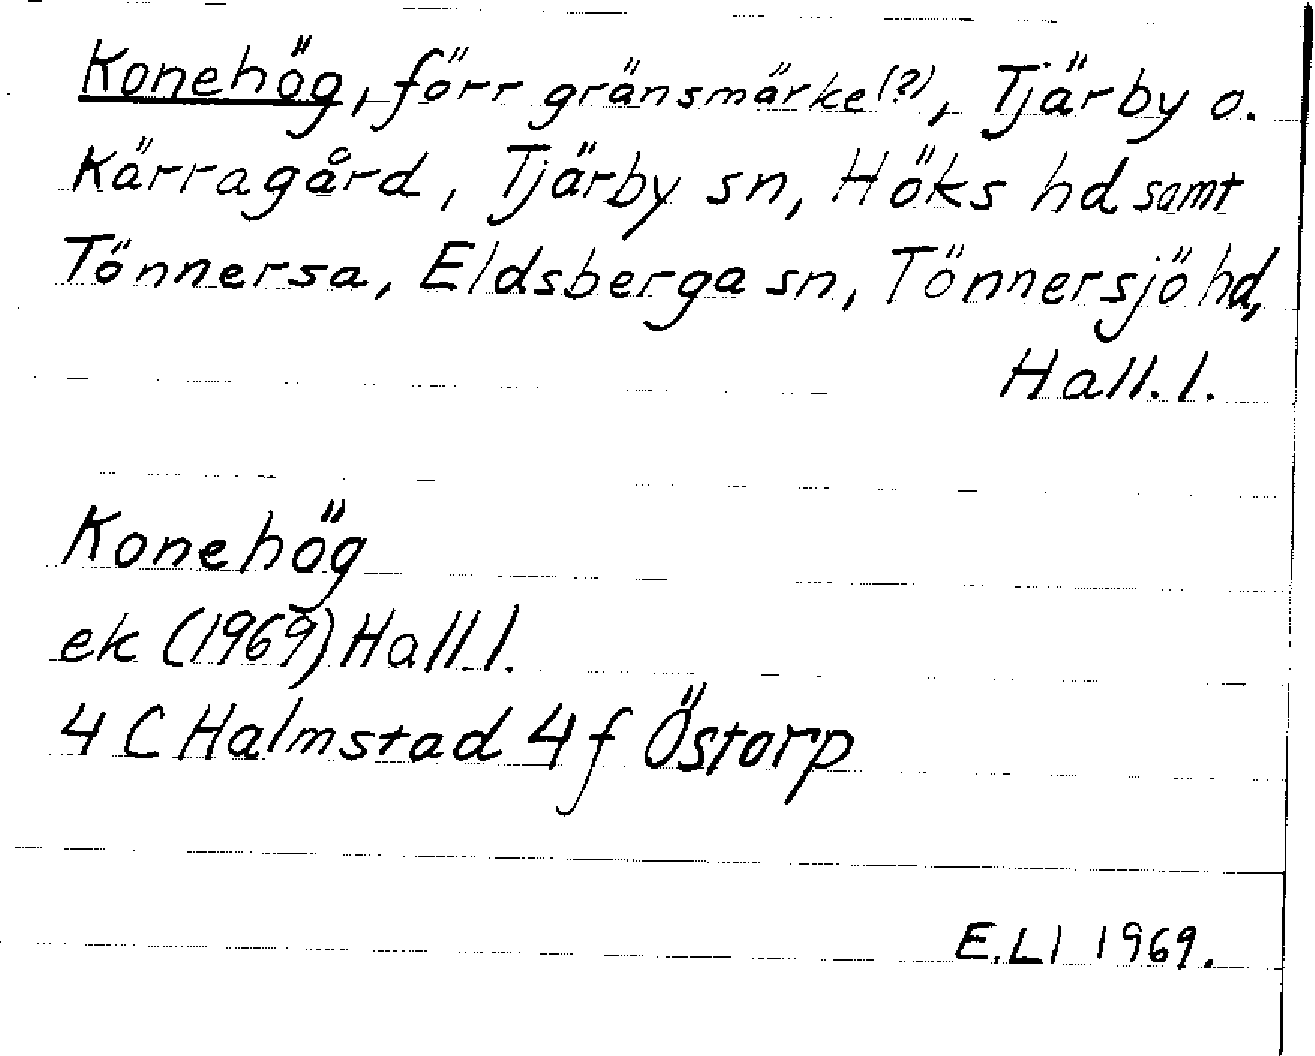 Konehög, förr gränsmärke(?), Tjärby o.
Kärragård, Tjärby sn, Höks hd samt
Tönnersa, Eldsberga sn, Tönnersjö hd,
Hall. l.
Konehög
ek (1969) Hall. l.
4 C Halmstad 4 f Östorp
E.Ll 1969.